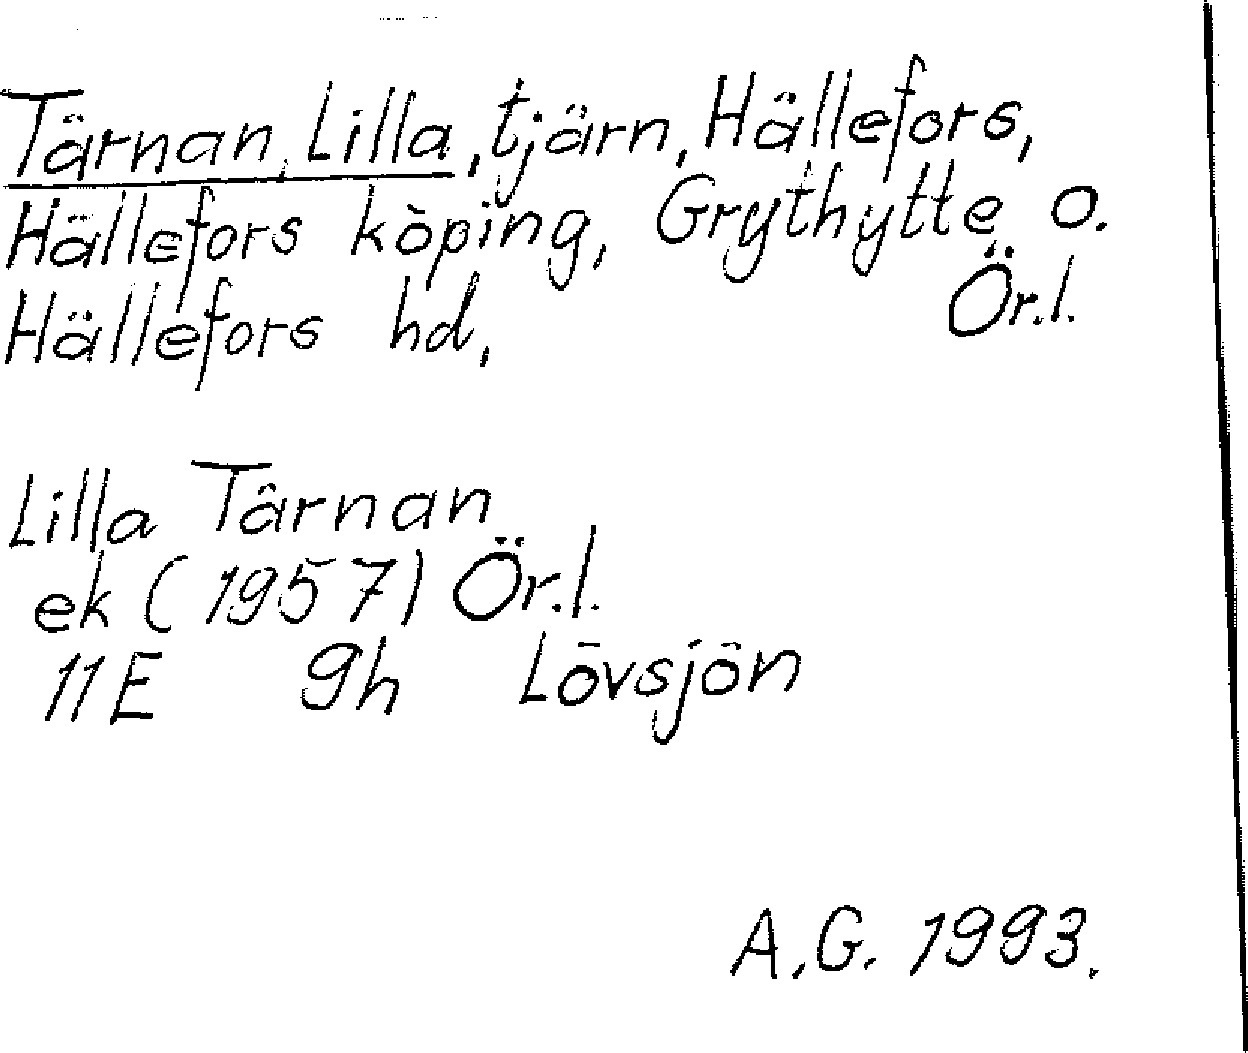 Tärnan, Lilla, tjärn, Hällefors,
Hällefors köping, Grythytte o.
Hällefors hd, Ör.l.
Lilla Tärnan
ek (1957) Ör.l.
11E 9h Lövsjön
A.G. 1993.